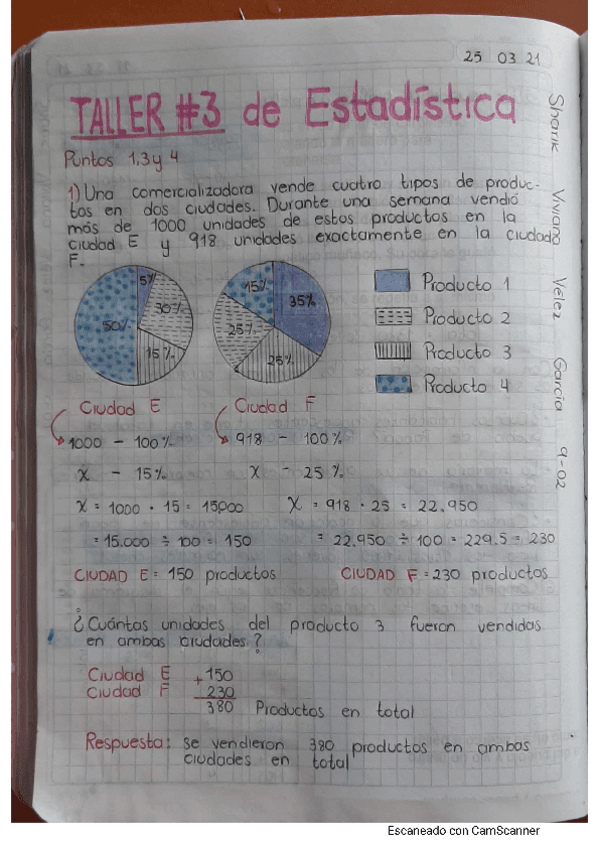 25 03 21
TALLER #3 de Estadística
Puntos 1,3 y 4
1) Una comercializadora vende cuatro tipos de produc-
tos en dos ciudades. Durante una semana vendió
más de 1000 unidades de estos productos en la
ciudad E y 918 unidades exactamente en la ciudad
F.
5%
30%
15%
50%
35%
25%
25%
15%
Producto 1
Producto 2
Producto 3
Producto 4
Ciudad E Ciudad F
1000 - 100% 918 - 100%
x - 15% x - 25%
x = 1000 · 15 = 15000 x = 918 · 25 = 22.950
= 15.000 ÷ 100 = 150 = 22.950 ÷ 100 = 229.5 = 230
CIUDAD E = 150 productos CIUDAD F = 230 productos
¿Cuántas unidades del producto 3 fueron vendidas
en ambas ciudades?
Ciudad E +150
Ciudad F 230
380 Productos en total
Respuesta: se vendieron 380 productos en ambas
ciudades en total
Sharik Viviana Vélez García 9-02
Escaneado con CamScanner